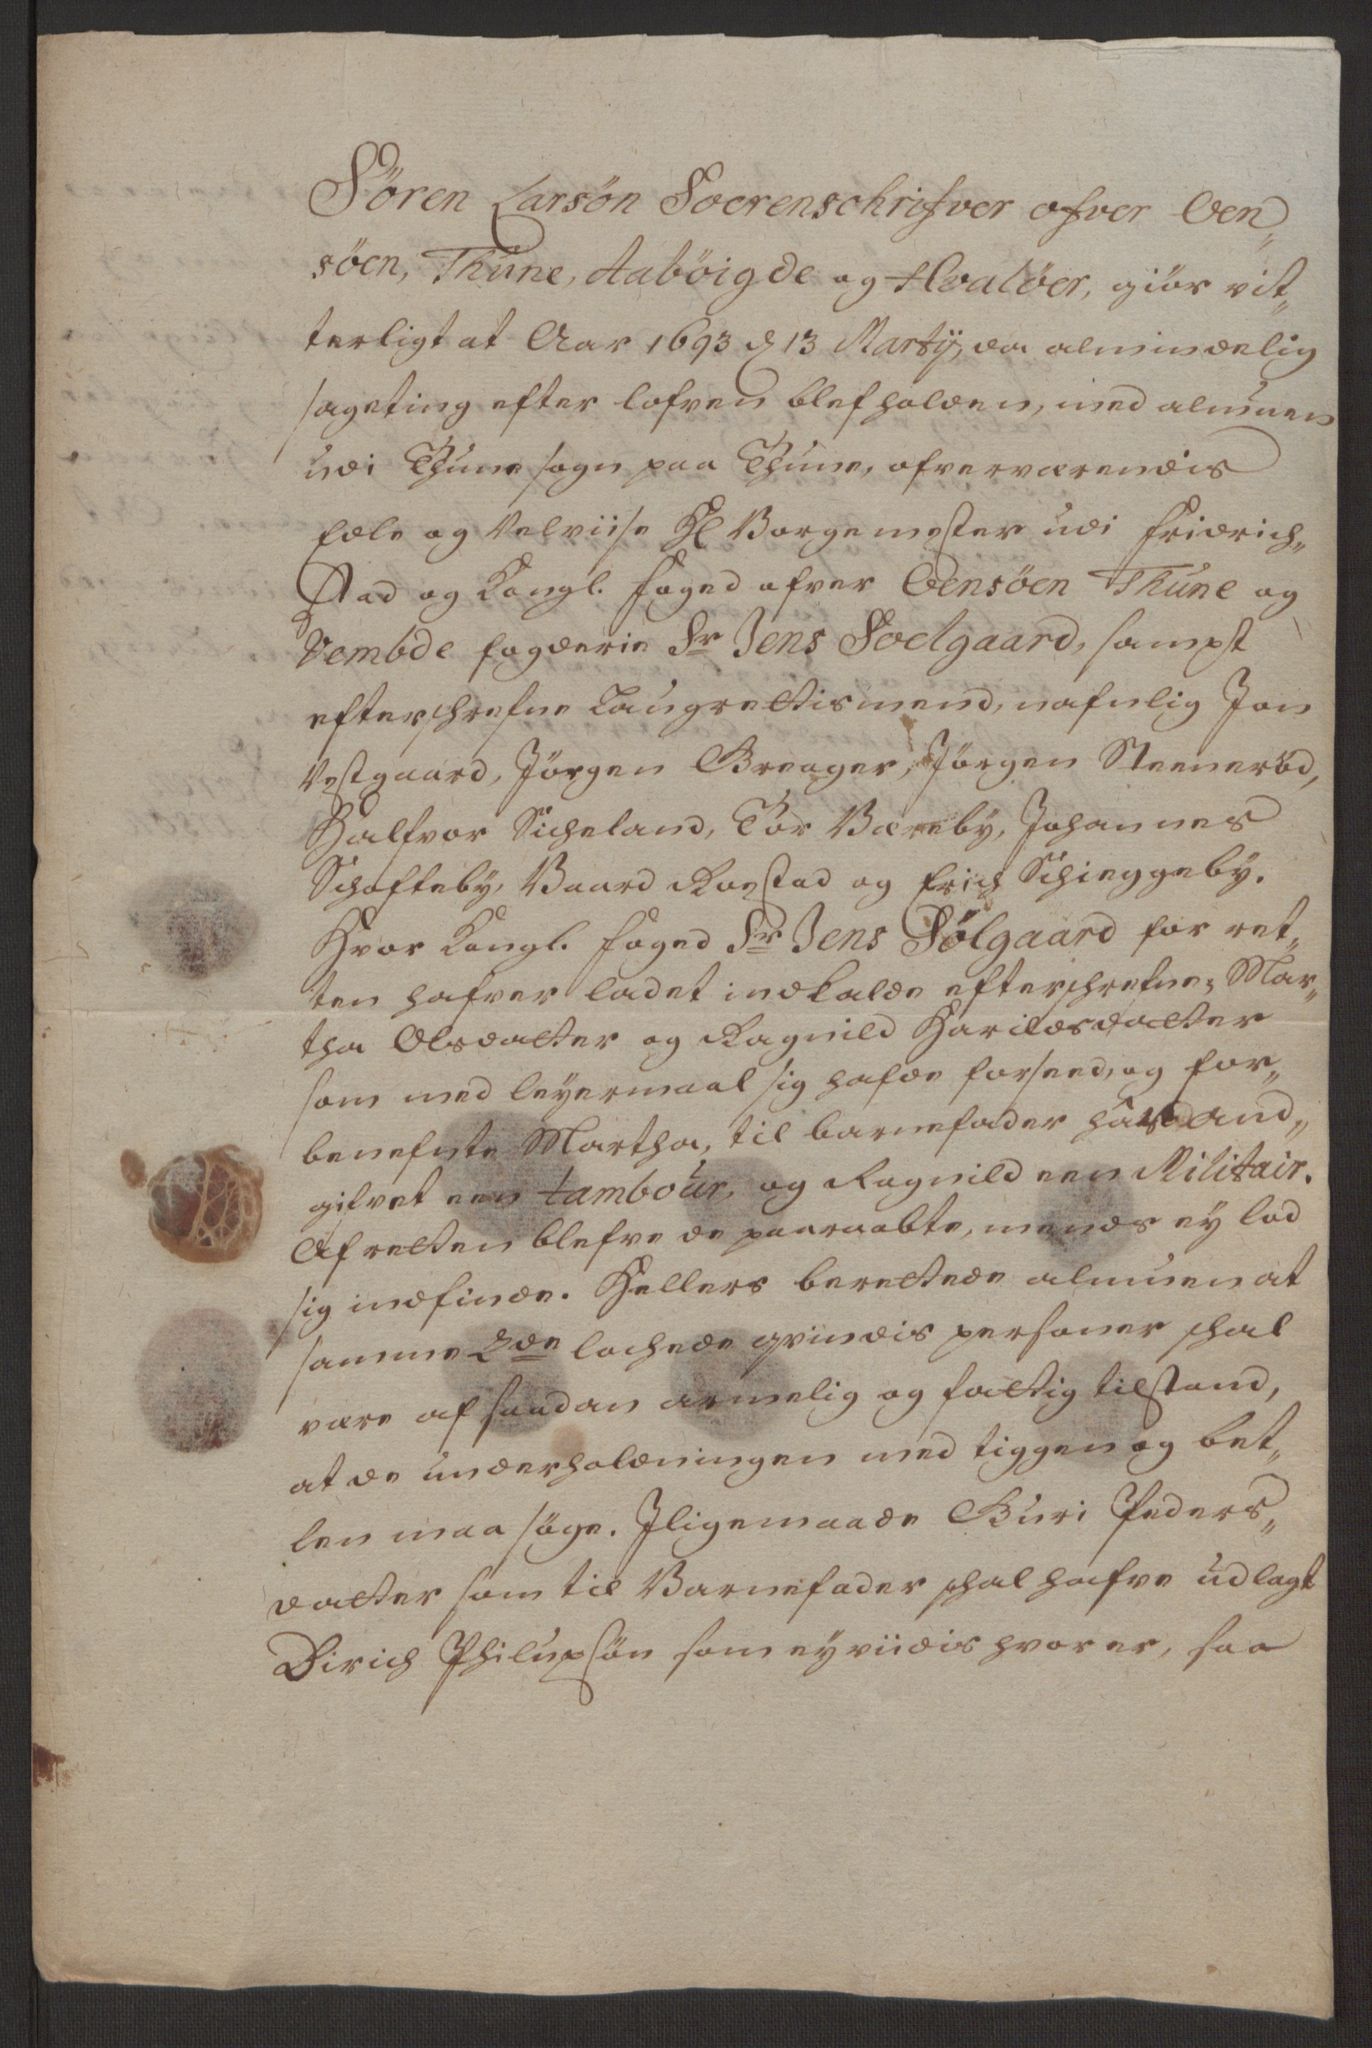 Sören Larsön Soerenschrifver ofver Oen„
söen, Thune, Aaböigde og Hvalöer, giör vit„
terligt at Aar 1693 d 13 Martij, da almindelig
sageting efter lofven blef holden, med almuen
udi Thune sogn paa Thune, ofververærendis
Edle og Velviise Hl Borgemester udi Fridrich„
stad og Kongl. foged ofver Oensöen Thune og
Vembde fogderie Sr Jens Soelgaard, sampt
efterschrefne Laugrettismend, nafnlig Jon
Vestgaard, Jörgen Greager, Jörgen Steneröd,
Halfvor Sicheland, Tor Bereby, Johannes
Schafteby, Baard Roestad og Erich Schinggeby.
Hvor Kongl. foged Sr Jens Sölgaard for ret„
ten hafver ladet indkalde efterschrefne; Mar„
tha Olsdatter og Ragnild Harildsdatter
som med leyermaal sig hafde forseed, og for„
benefnte Martha, til barnefader hafd and„
gifvet een tambour, og Ragnild een Militair.
Af retten blefve de paaraabte, mends ey lod
sig indfinde. Hellers berettede almuen at
samme 2de lochede qvindis personer schal
være af saadan armelig og fattig tilstand,
at de underholdningen med tiggen og bet„
len maa söge. Iligemaade Guri Peders„
datter som til Barnefader schal hafve udlagt
Dirich Philupsön som ey viidis hvor er, saa